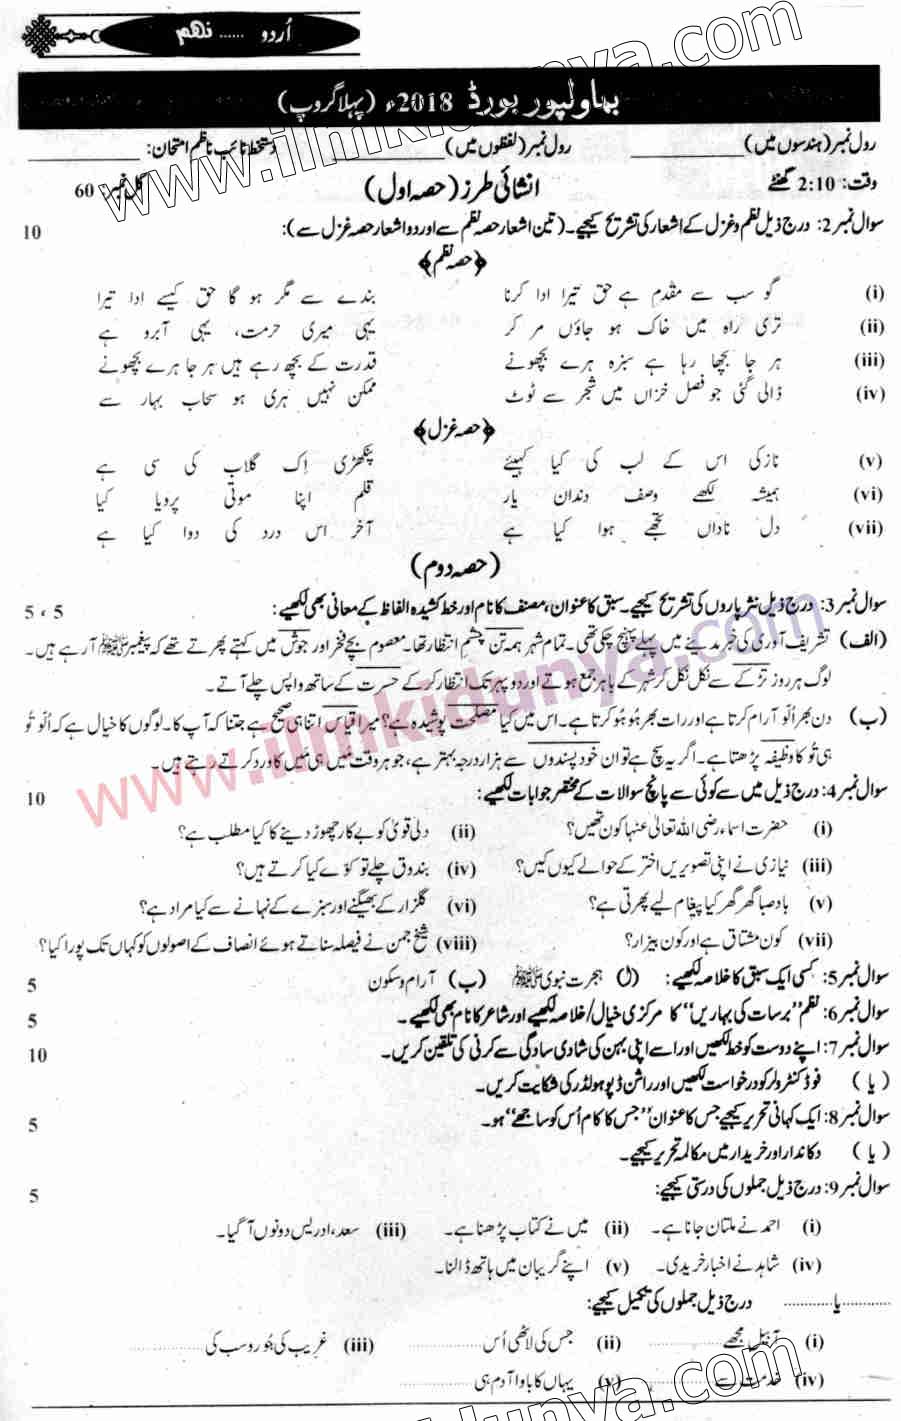 اُردو ...... نہم
بہاولپور بورڈ 2018ء (پہلا گروپ)
رول نمبر (ہندسوں میں) ________ رول نمبر (لفظوں میں) ________ دستخط نائب ناظم امتحان: ________
وقت: 2:10 گھنٹے انشائی طرز (حصہ اول) کل نمبر 60
سوال نمبر 2: درج ذیل نظم و غزل کے اشعار کی تشریح کیجیے۔ (تین اشعار حصہ نظم سے اور دو اشعار حصہ غزل سے): 10
﴿حصہ نظم﴾
(i) گو سب سے مقدم ہے حق تیرا ادا کرنا بندے سے مگر ہو گا حق کیسے ادا تیرا
(ii) تری راہ میں خاک ہو جاؤں مر کر یہی میری حرمت، یہی آبرو ہے
(iii) ہر جا بچھا رہا ہے سبزہ ہرے بچھونے قدرت کے بچھ رہے ہیں ہر جا ہرے بچھونے
(iv) ڈالی گئی جو فصل خزاں میں شجر سے ٹوٹ ممکن نہیں ہری ہو سحاب بہار سے
﴿حصہ غزل﴾
(v) نازکی اس کے لب کی کیا کہیئے پنکھڑی اِک گلاب کی سی ہے
(vi) ہمیشہ لکھے وصف دندان یار قلم اپنا موتی پرویا کیا
(vii) دل ناداں تجھے ہوا کیا ہے آخر اس درد کی دوا کیا ہے
(حصہ دوم)
سوال نمبر 3: درج ذیل نثر پاروں کی تشریح کیجیے۔ سبق کا عنوان، مصنف کا نام اور خط کشیدہ الفاظ کے معانی بھی لکھیے: 5 ، 5
(الف) تشریف آوری کی خبر مدینے میں پہلے پہنچ چکی تھی۔ تمام شہر ہمہ تن چشمِ انتظار تھا۔ معصوم بچے فخر اور جوش میں کہتے پھرتے تھے کہ پیغمبر ﷺ آ رہے ہیں۔
لوگ ہر روز تڑکے سے نکل نکل کر شہر کے باہر جمع ہوتے اور دوپہر تک انتظار کر کے حسرت کے ساتھ واپس چلے آتے۔
(ب) دن بھر اُلو آرام کرتا ہے اور رات بھر ہُو ہُو کرتا ہے۔ اس میں کیا مصلحت پوشیدہ ہے؟ میرا قیاس اتنا ہی صحیح ہے جتنا کہ آپ کا۔ لوگوں کا خیال ہے کہ اُلو تُو
ہی تُو کا وظیفہ پڑھتا ہے۔ اگر یہ سچ ہے تو ان خود پسندوں سے ہزار درجہ بہتر ہے، جو ہر وقت مَیں ہی مَیں کا ورد کرتے رہتے ہیں۔
سوال نمبر 4: درج ذیل میں سے کوئی سے پانچ سوالات کے مختصر جوابات لکھیے: 10
(i) حضرت اسماء رضی اللہ تعالیٰ عنہا کون تھیں؟ (ii) دلی قویٰ کو بے کار چھوڑ دینے کا کیا مطلب ہے؟
(iii) نیازی نے اپنی تصویریں اختر کے حوالے کیوں کیں؟ (iv) بندوق چلے تو کوّے کیا کرتے ہیں؟
(v) بادِ صبا گھر گھر کیا پیغام لیے پھرتی ہے؟ (vi) گلزار کے بھیگنے اور سبزے کے نہانے سے کیا مراد ہے؟
(vii) کون مشتاق ہے اور کون بیزار؟ (viii) شیخ جمن نے فیصلہ سناتے ہوئے انصاف کے اصولوں کو کہاں تک پورا کیا؟
سوال نمبر 5: کسی ایک سبق کا خلاصہ لکھیے: (ا) ہجرت نبوی ﷺ (ب) آرام و سکون 5
سوال نمبر 6: نظم "برسات کی بہاریں" کا مرکزی خیال/خلاصہ لکھیے اور شاعر کا نام بھی لکھیے۔ 5
سوال نمبر 7: اپنے دوست کو خط لکھیں اور اسے اپنی بہن کی شادی سادگی سے کرنی کی تلقین کریں۔ 10
(یا) فوڈ کنٹرولر کو درخواست لکھیں اور راشن ڈپو ہولڈر کی شکایت کریں۔
سوال نمبر 8: ایک کہانی تحریر کیجیے جس کا عنوان "جس کا کام اُس کو ساجھے" ہو۔ 5
(یا) دکاندار اور خریدار میں مکالمہ تحریر کیجیے۔
سوال نمبر 9: درج ذیل جملوں کی درستی کیجیے: 5
(i) احمد نے ملتان جانا ہے۔ (ii) میں نے کتاب پڑھنا ہے۔ (iii) سعد، ادریس دونوں آ گیا۔
(iv) شاہد نے اخبار خریدی۔ (v) اپنے گریبان میں ہاتھ ڈالنا۔
............ یا ............ درج ذیل جملوں کی تکمیل کیجیے:
(i) آ بیل مجھے ............ (ii) جس کی لاٹھی اُس ............ (iii) غریب کی جُورو سب کی ............
(iv) خدمت سے ............ (v) یہاں کا باوا آدم ہی ............
www.ilmkidunya.com
www.ilmkidunya.com
www.ilmkidunya.com